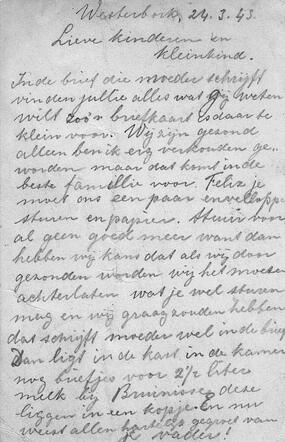 Westerbork, 24.3.43.
Lieve kinderen en
kleinkind.
In de brief die moeder schrijft
vinden jullie alles wat gij weten
wilt zoo'n briefkaart is daar te
klein voor. Wij zijn gezond
alleen ben ik erg verkouden ge-
worden maar dat komt in de
beste famillie voor. Felix je
moet ons een paar enveloppe
sturen en papier. Stuur voor
al geen goed meer want dan
hebben wij kans dat als wij door
gezonden worden wij het moeten
achterlaten wat je wel sturen
mag en wij graag zouden hebben
dat schrijft moeder wel in de brief
Dan ligt in de kast in de kamer
nog briefjes voor 2½ liter
melk bij Bruinisse deze
liggen in een kopje. En nu
weest allen hartelijk gegroet van
je vader!